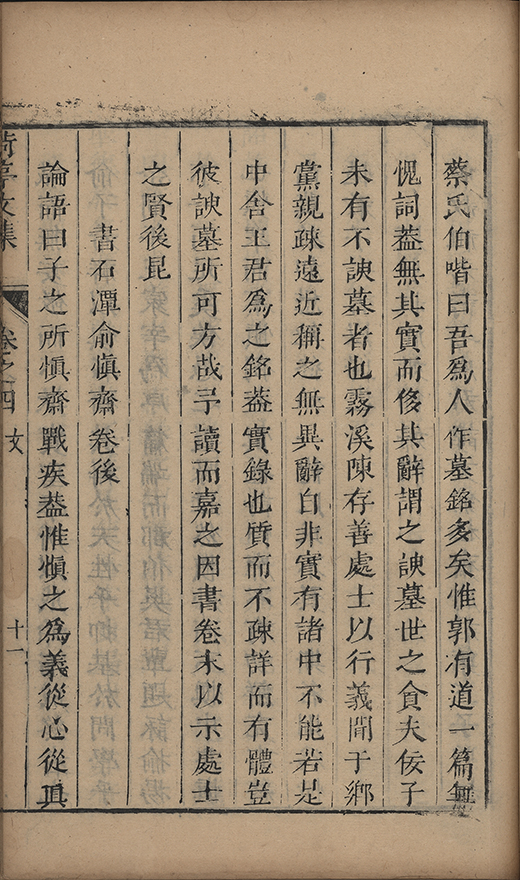 蔡氏伯喈曰吾爲人作墓銘多矣惟郭有道一篇無
愧詞葢無其實而侈其辭謂之諛墓世之貪夫佞子
未有不諛墓者也霧溪陳存善處士以行義聞于鄉
黨親疎遠近稱之無異辭自非實有諸中不能若是
中舍王君爲之銘葢實錄也質而不疎詳而有體豈
彼諛墓所可方哉予讀而嘉之因書卷末以示處士
之賢後昆
書石潭俞愼齋卷後
論語曰子之所愼齋戰疾葢惟愼之爲義從心從真
文集
卷之四
文
十一